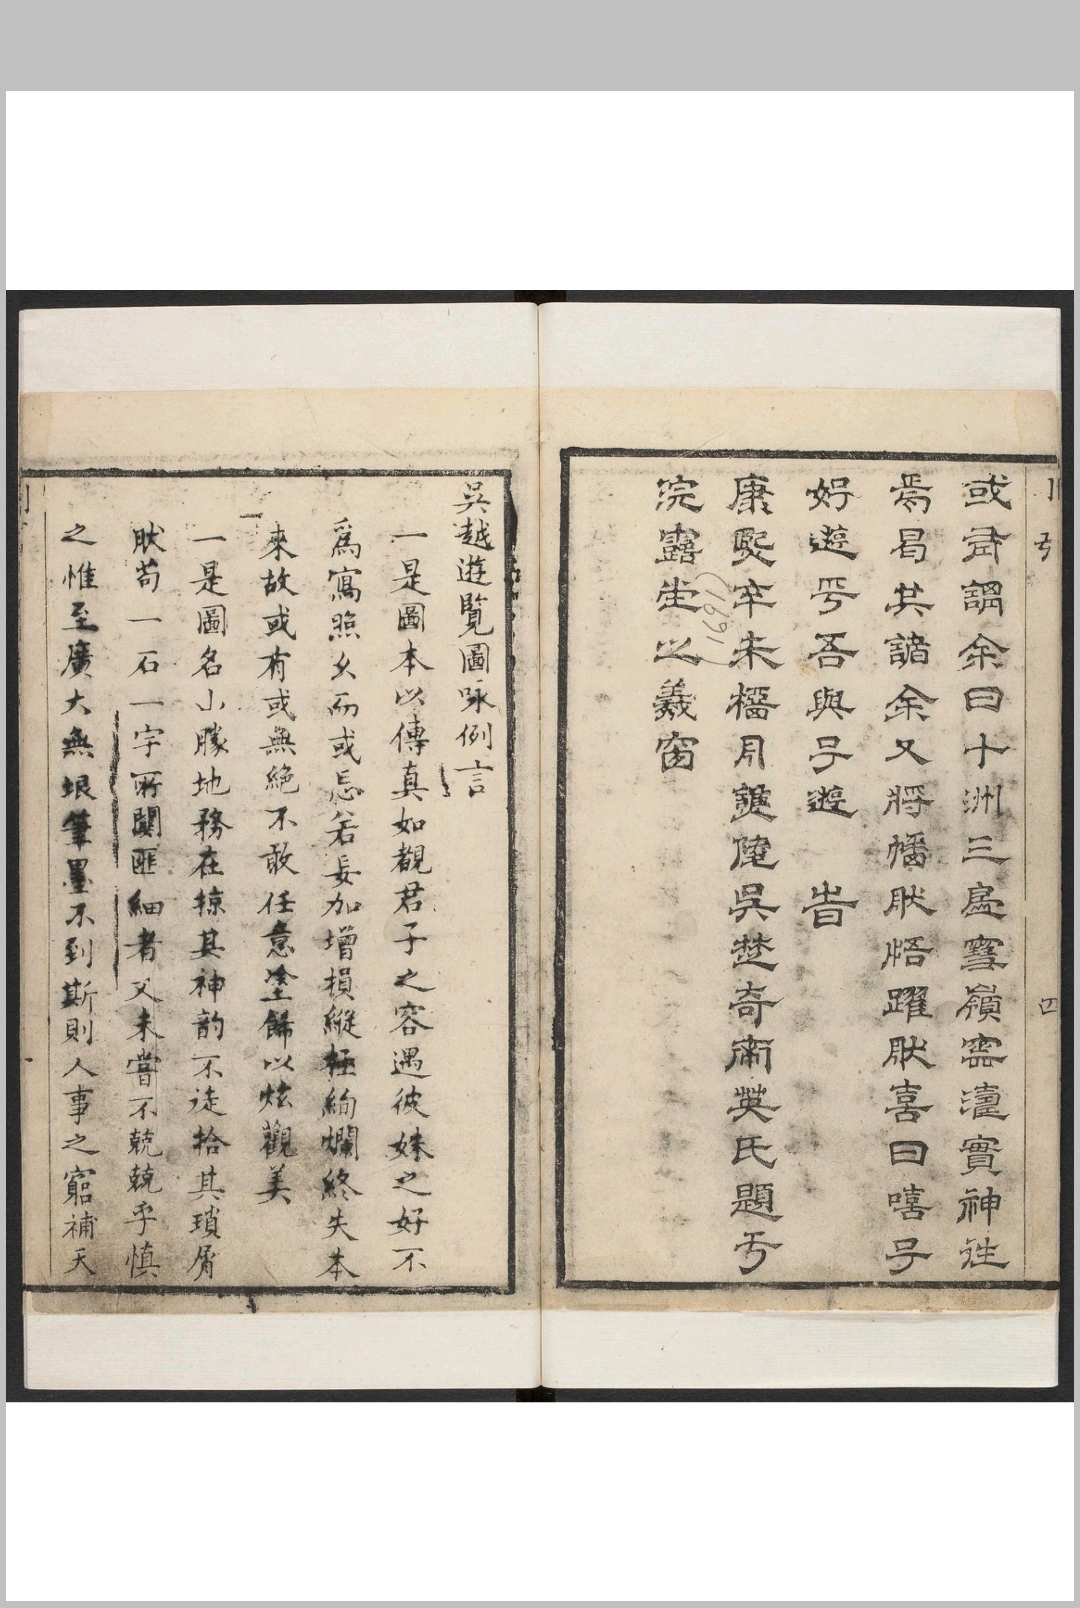 或有謂余曰十洲三島雪嶺雲濤實神往
焉曷其諸余又將幡肰悟躍肰喜曰嘻子
好遊乎吾與子遊 旹
康熙辛未橘月吳楚奇衲英氏題于
浣露堂之羲窗
(1691)
四
吳越遊覽圖咏例言
一是圖本以傳真如覩君子之容遇彼姝之好不
爲寫照幺而或忘若妄加增損縱極絢爛終失本
來故或有或無絕不敢任意塗飾以炫觀美
一是圖名山勝地務在掠其神韵不徒拾其瑣屑
肰苟一石一字所關匪細者又未嘗不兢兢乎慎
之惟至廣大無垠筆墨不到斯則人事之窮補天